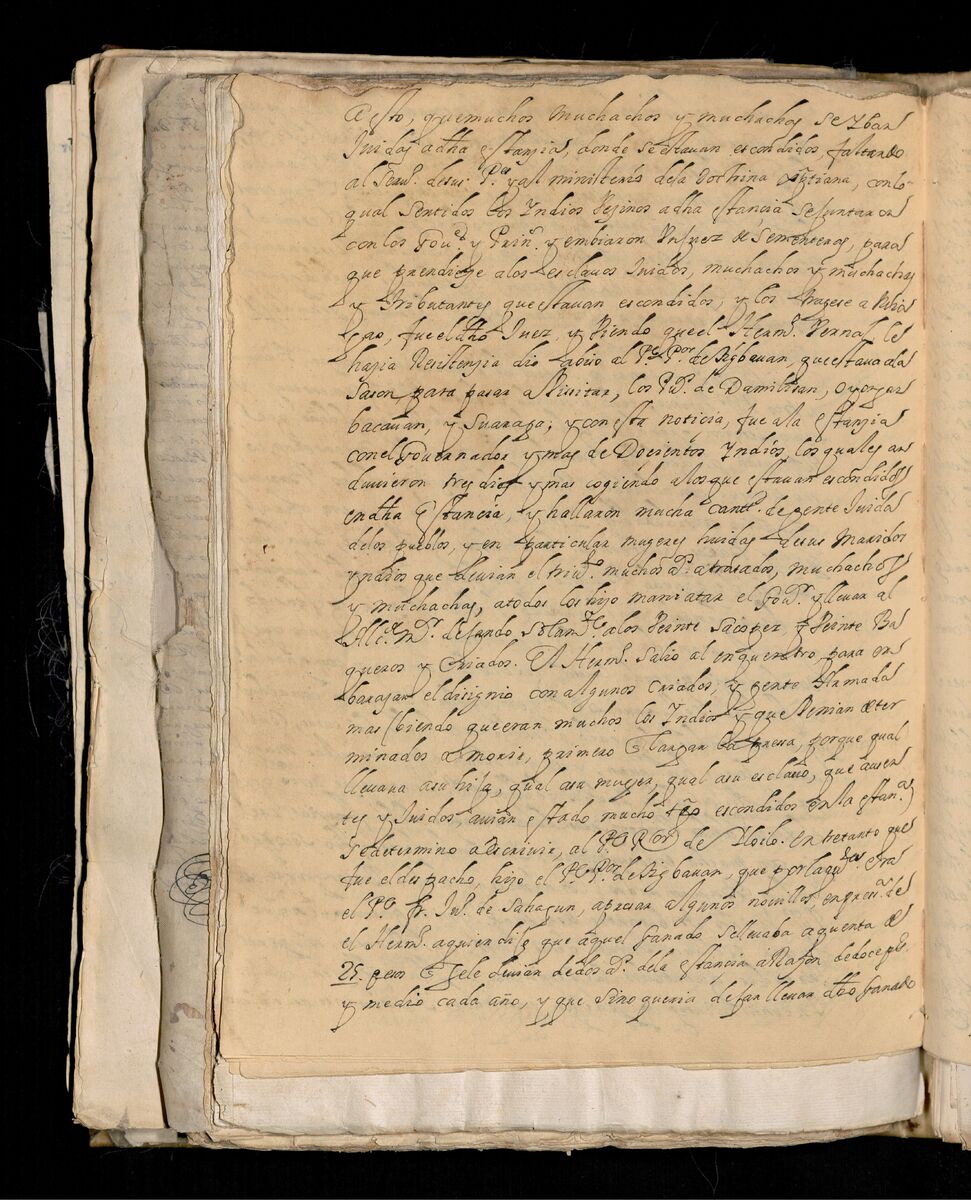 A esto, que muchos muchachos y muchachas se yban
Juidas a dha estanzia, donde se estauan escondidos, faltando
al seru.º de sus P.es y al ministerio de la doctrina xptiana, con lo
qual sentidos los Indios vezinos a dha estancia se juntaron
con los Gou.es y Prin.s y embiaron un Juez de sementeras, para
que prendiese a los esclauos Juidos, muchachos y muchachas
y tributantes que estauan escondidos, y los tragese a
fue el dho Juez, y viendo que el Herm.º Bernal le
hazia Resistenzia dio auiso al P.e P.or de Sigbauan, que estaua a la
sason para pasar a visitar, los P.os de Damilisan, Oyorgar
bacauan, y Suaraga; y con esta noticia, fue a la estanzia
con el Gouernador y mas de Docientos Indios, los quales an
duuieron tres dias y mas cogiendo a los que estauan escondidos
en dha estancia, y hallaron mucha cant.d de gente Juida
de los pueblos, y en particular mugeres huidas de sus Maridos
yndios que deuian el triu.º muchos a.s atrasados, muchachos
y muchachas, a todos los hizo maniatar el Gou.or y lleuar al
Alc.e m.or dejando solam.te a los veinte Sacopez, y veinte Ba
queros y Criados. El Herm.º salio al enquentro para en
barajar el disignio con algunos criados, y gente Armada
mas sabiendo que eran muchos los Indios y que venian deter
minados a morir, primero q largar la presa, porque qual
lleuaua a su hija, qual a su muger, qual a su esclauo, que ausen
tes y Juidos, auian estado mucho tpo escondidos en la estan.a
Se determino a escriuir, al P.e R.or de Yloilo. En tretanto que
fue el despacho, hizo el P.e P.or de Sigbauan, que por la era
el P.e fr. Ju.º de Sahagun, apresar algunos nouillos, en pres.a de
el Herm.º a quien dise que aquel ganado se lleuaba a quenta de
25. pesos q se le deuian de dos a.s de la estancia a Razon de doce p.s
y medio cada año, y que si no queria dejar lleuar dho ganado